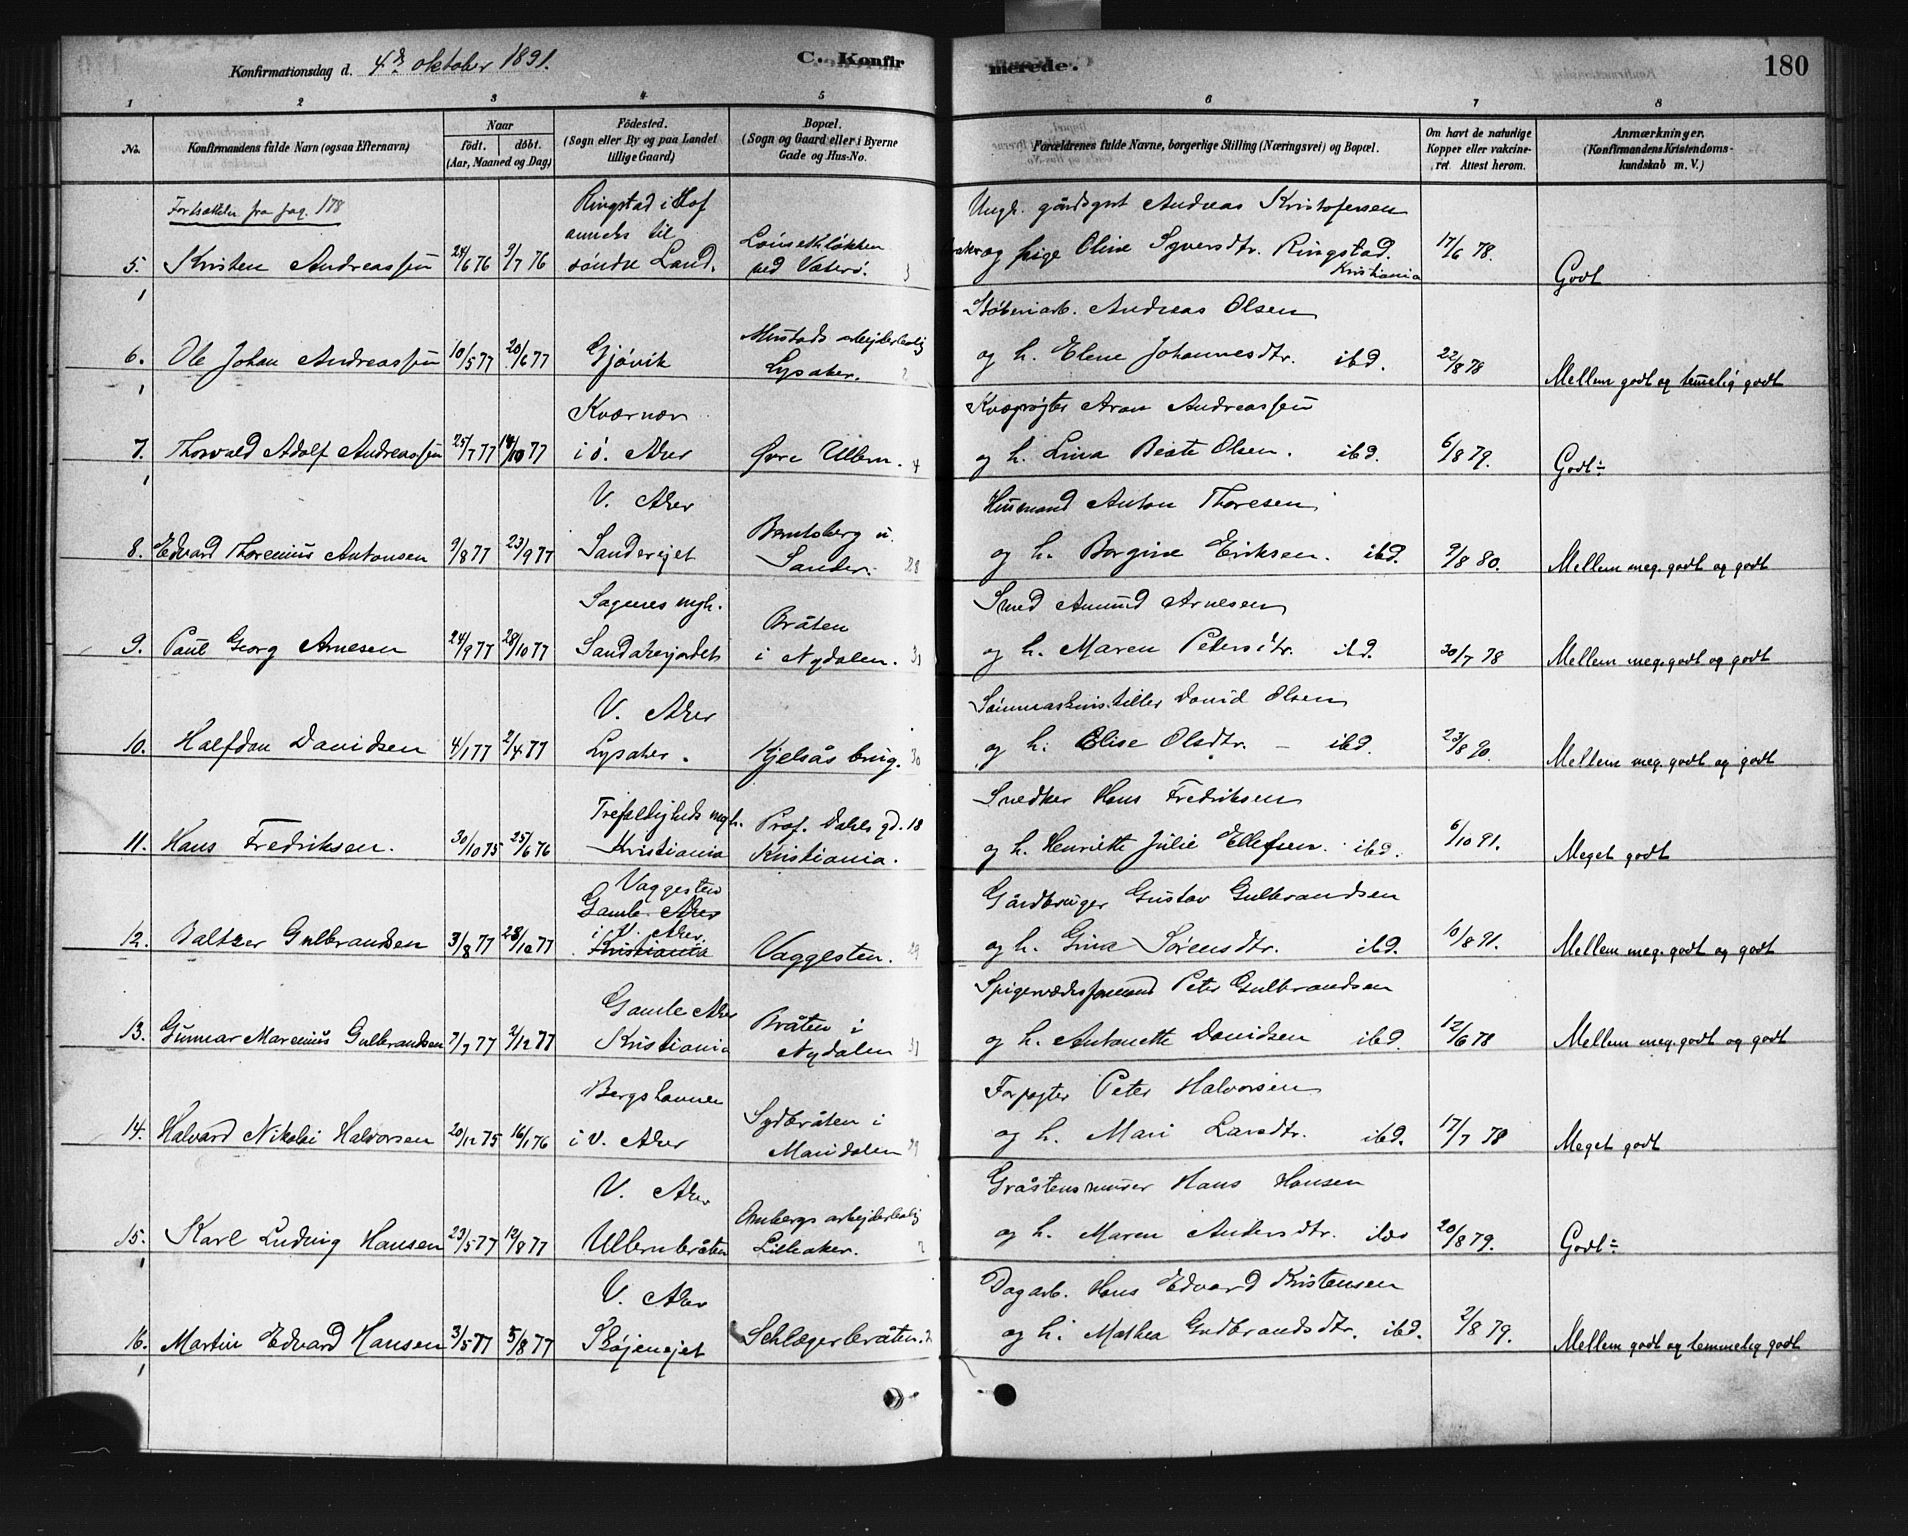 Konfirmationsdag d. 4de oktober 1891.
C. Konfirmerede.
180
1 2 3 4 5 6 7 8
No.
Konfirmandens fulde Navn (ogsaa Efternavn)
Naar
født. døbt.
(Aar, Maaned og Dag)
Fødested.
(Sogn eller By og paa Landet tillige Gaard)
Bopæl.
(Sogn og Gaard eller i Byerne Gade og Hus-No.
Forældrenes fulde Navne, borgerlige Stilling (Næringsvei) og Bopæl.
Om havt de naturlige Kopper eller vakcineret. Attest herom.
Anmærkninger.
(Konfirmandens Kristendomskundskab m. V.)
Fortsættelse fra pag. 178
5. Kristen Andreassen 24/6 76 9/7 76 Ringstad i Hof annex til søndre Land. ved Vækerø. 3
Ungk. gårdsgut Andreas Kristofersen
og pige Oline Syversdtr. Ringstad. Kristiania 17/6 78. Godt
6. Ole Johan Andreassen 10/5 77 20/6 77 Gjøvik Mustads arbejderbolig Lysaker. 2
Støberiarb. Andreas Olsen
og h. Elene Johannesdtr. ibd. 22/8 78 Mellem godt og temelig godt
7. Thorvald Adolf Andreassen 25/7 77 14/10 77 Kværner i ø. Aker Øvre Ullern. 4
Kvægrøgter Aron Andreassen
og h. Lina Beate Olsen. ibd. 6/8 79. Godt÷
8. Edvard Thorenius Antonsen 9/8 77 23/9 77 V. Aker Sanderejet Berntsberg u. Sander. 28
Husmand Anton Thoresen
og h. Borgine Eriksen. ibd. 9/8 80. Mellem meg. godt og godt
9. Paul Georg Arnesen 24/9 77 28/10 77 Sagenes mgh. Sandakerjordet Bråten i Nydalen. 31
Smed Amund Arnesen
og h. Maren Petersdtr. ibd. 30/7 78 Mellem meg. godt og godt
10. Halfdan Davidsen 4/1 77 2/4 77 V. Aker Lysaker. Kjelsås brug. 30
David Olsen
og h. Elise Olsdtr. – ibd. 23/8 90. Mellem meg. godt og godt
11. Hans Fredriksen. 30/10 75 25/6 76 Trefoldigheds mgh. Kristiania Prof. Dahls gd. 18 Kristiania.
Snedker Hans Fredriksen
og h. Henriette Julie Ellefsen. ibd. 6/10 91. Meget godt
12. Baltzer Gulbrandsen 3/8 77 28/10 77 Vaggesten Gamle Aker i V. Aker. Kristiania Vaggesten. 29
Gårdbruger Gustav Gulbrandsen
og h. Gina Sørensdtr. ibd. 10/8 91. Mellem meg. godt og godt
13. Gunnar Marenius Gulbrandsen 7/7 77 2/12 77 Gamle Aker Kristiania Bråten i Nydalen 31
Spigerværksformand Peter Gulbrandsen
og h. Antonette Davidsen ibd. 12/6 78 Mellem meg. godt og godt
14. Halvard Nikolai Halvorsen 20/12 75 16/1 76 Bergshavnen i V. Aker Sydbråten i Maridalen 29
Forpagter Peter Halvorsen
og h. Mari Larsdtr. ibd. 17/7 78 Meget godt
15. Karl Ludvig Hansen 23/5 77 12/8 77 V. Aker Ullernbråten Ambergs arbejderbolig Lilleaker. 2
Gråstensmurer Hans Hansen
og h. Maren Andersdtr. ibd 20/8 79. Godt÷
16. Martin Edvard Hansen 3/5 77 5/8 77 V. Aker Skøjenejet Schlægerbråten. 2
Dagarb. Hans Edvard Kristensen
og h. Mathea Gudbrandsdtr. ibd. 2/8 79. Mellem godt og temmelig godt